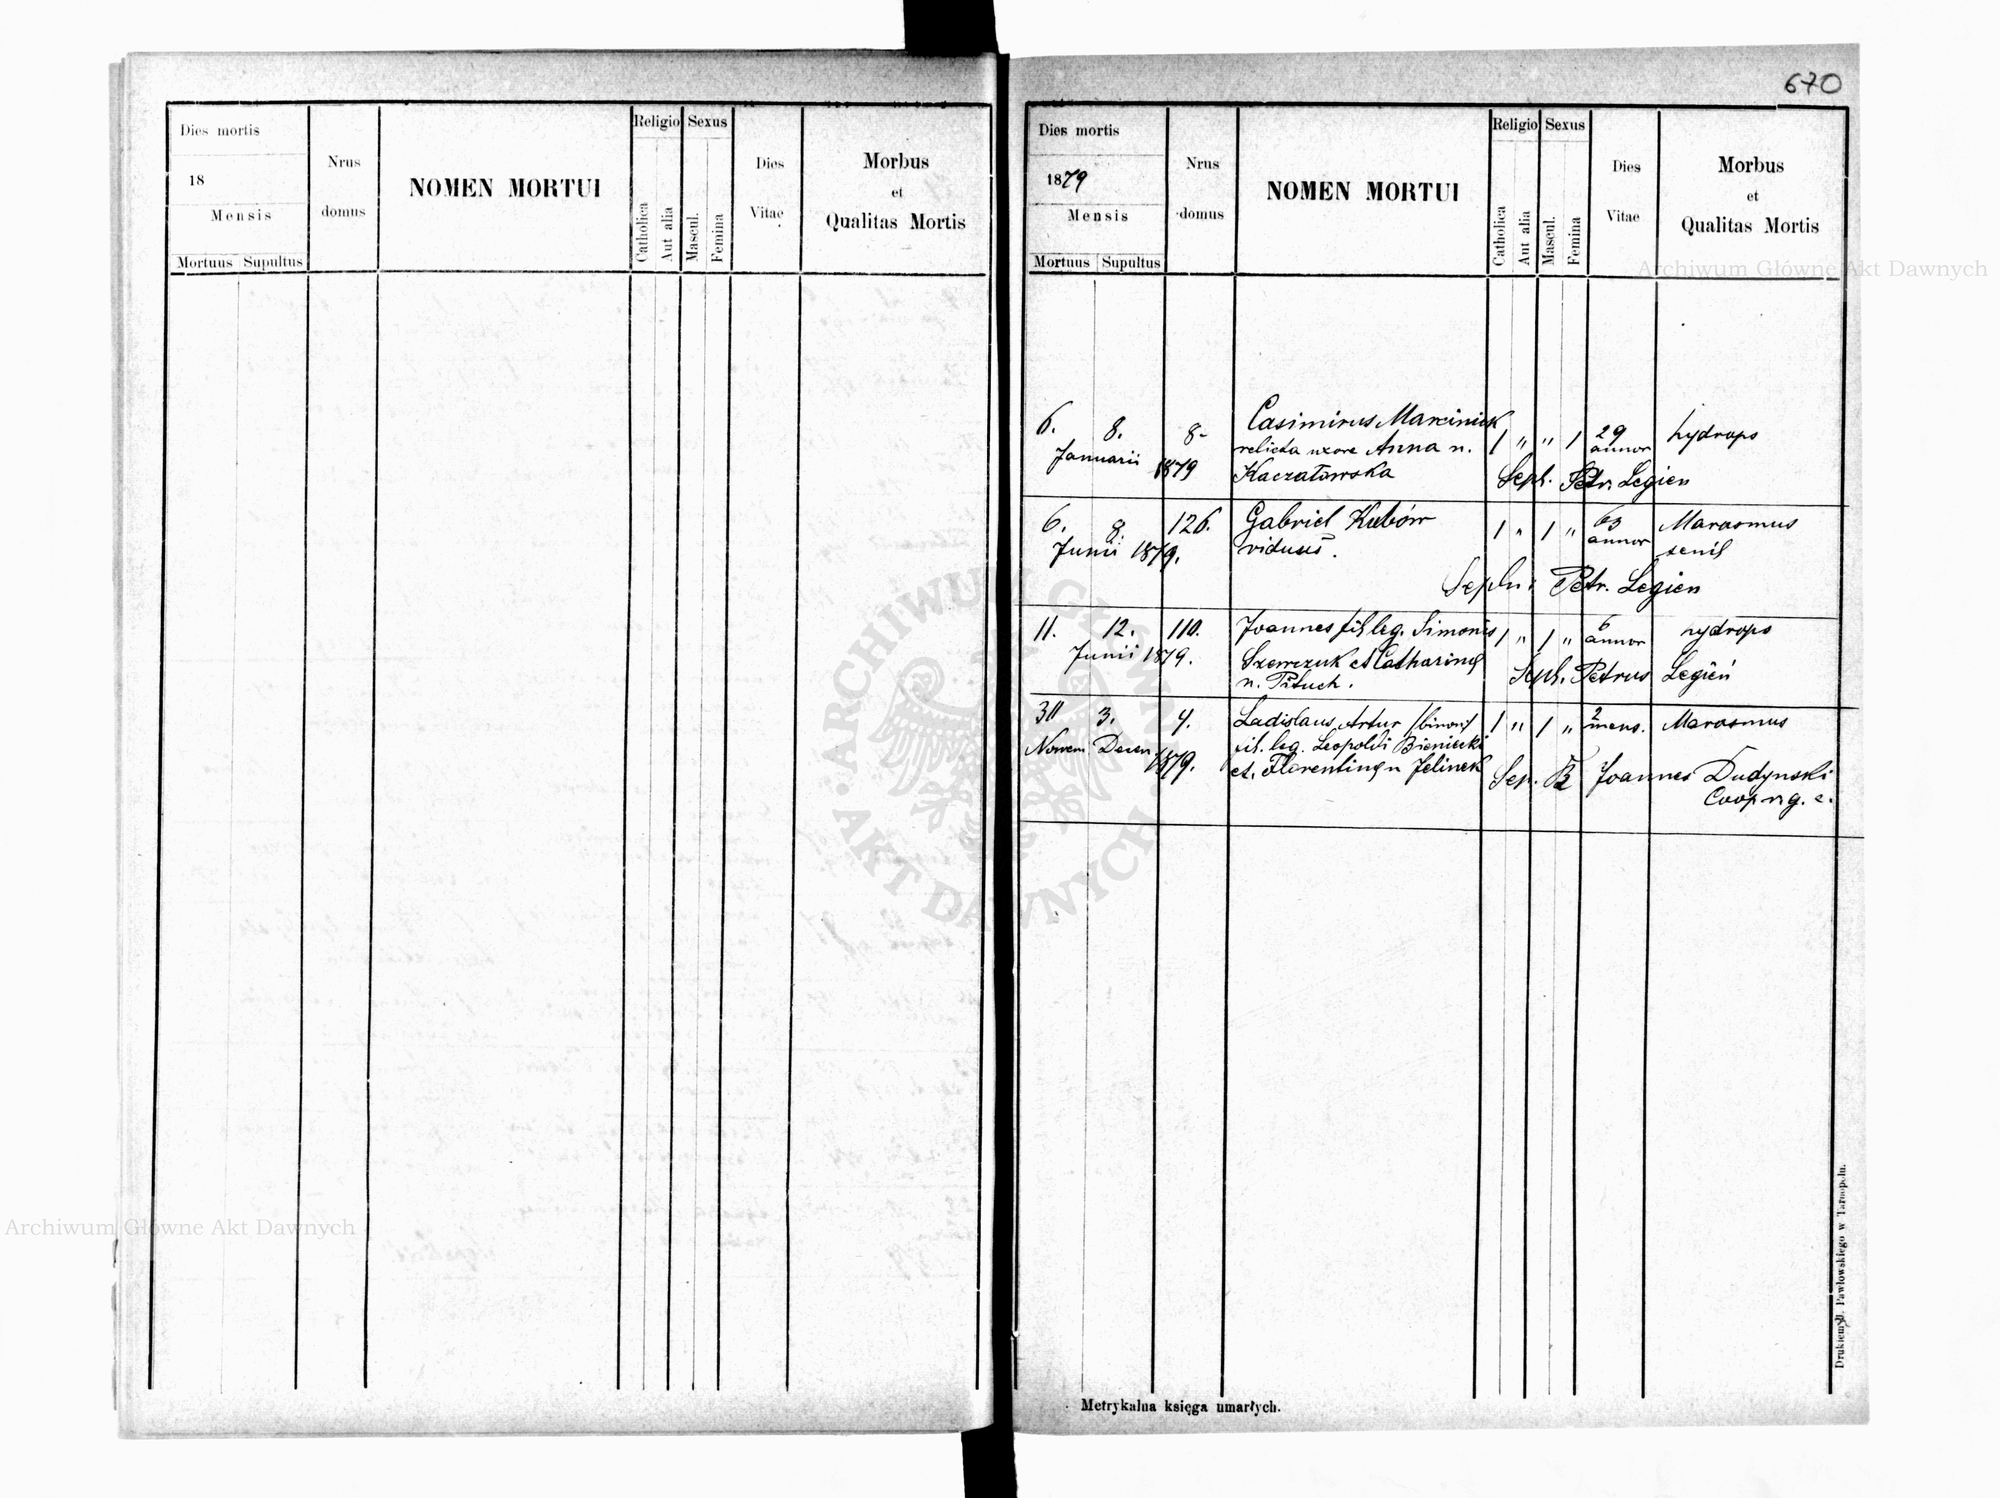 Dies mortis
18
Mensis
Mortuus Supultus
Nrus
domus
NOMEN MORTUI
Religio Sexus
Catholica
Aut alia
Mascul.
Femina
Dies
Vitae
Morbus
et
Qualitas Mortis
670
Dies mortis
1879
Mensis
Mortuus Supultus
Nrus
domus
NOMEN MORTUI
Religio Sexus
Catholica
Aut alia
Mascul.
Femina
Dies
Vitae
Morbus
et
Qualitas Mortis
6. 8. 8- Casimirus Marciniak 1 " " 1 29 hydrops
Januarii 1879 relicta uxore Anna n. annor
Kaczatowska Seph. Petr. Legien
6. 8. 126. Gabriel Kubów 1 " 1 " 63 Marasmus
Junii 1879. viduus. annor senil
Seplui Petr. Legien
11. 12. 110. Joannes fil leg. Simonis 1 " 1 " 6 annor hydrops
Junii 1879. Szewczuk et Catharina Seph. Petrus Legień
n. Pituch.
30 3. 4. Ladislaus Artur /binoni/ 1 " 1 " 2 mens. Marasmus
Novem. Decem fil. leg. Leopoldi Bieniecki
1879. et. Florentina n Jelinek Sep. Joannes Dudynski
Coop
Metrykalna księga umarłych.
Drukiem J. Pawłowskiego w Tarnopolu.
Archiwum Główne Akt Dawnych
Archiwum Główne Akt Dawnych
ARCHIWUM GŁÓWNE AKT DAWNYCH